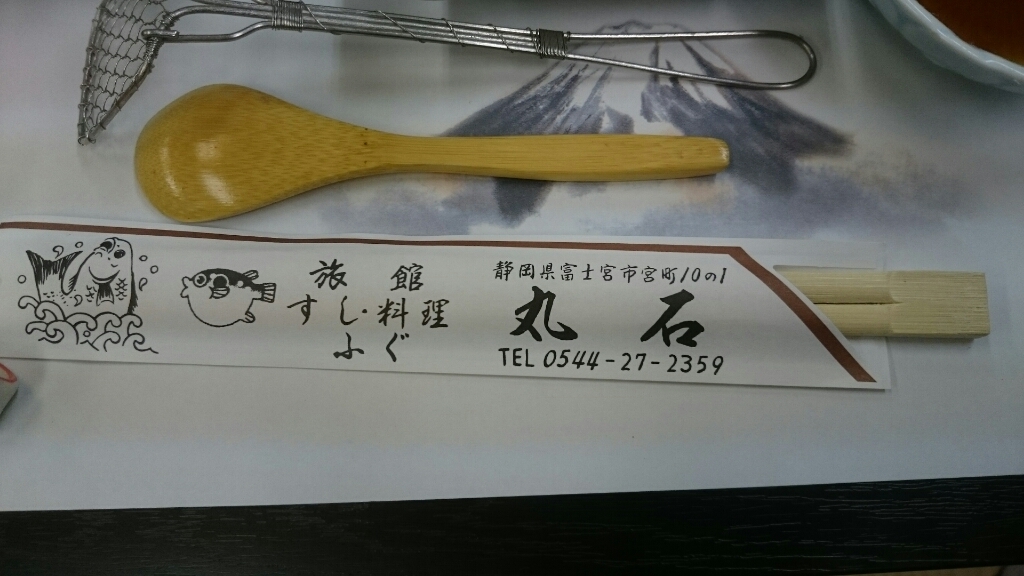 旅館
すし・料理
ふぐ
静岡県富士宮市宮町10の1
丸石
TEL 0544-27-2359